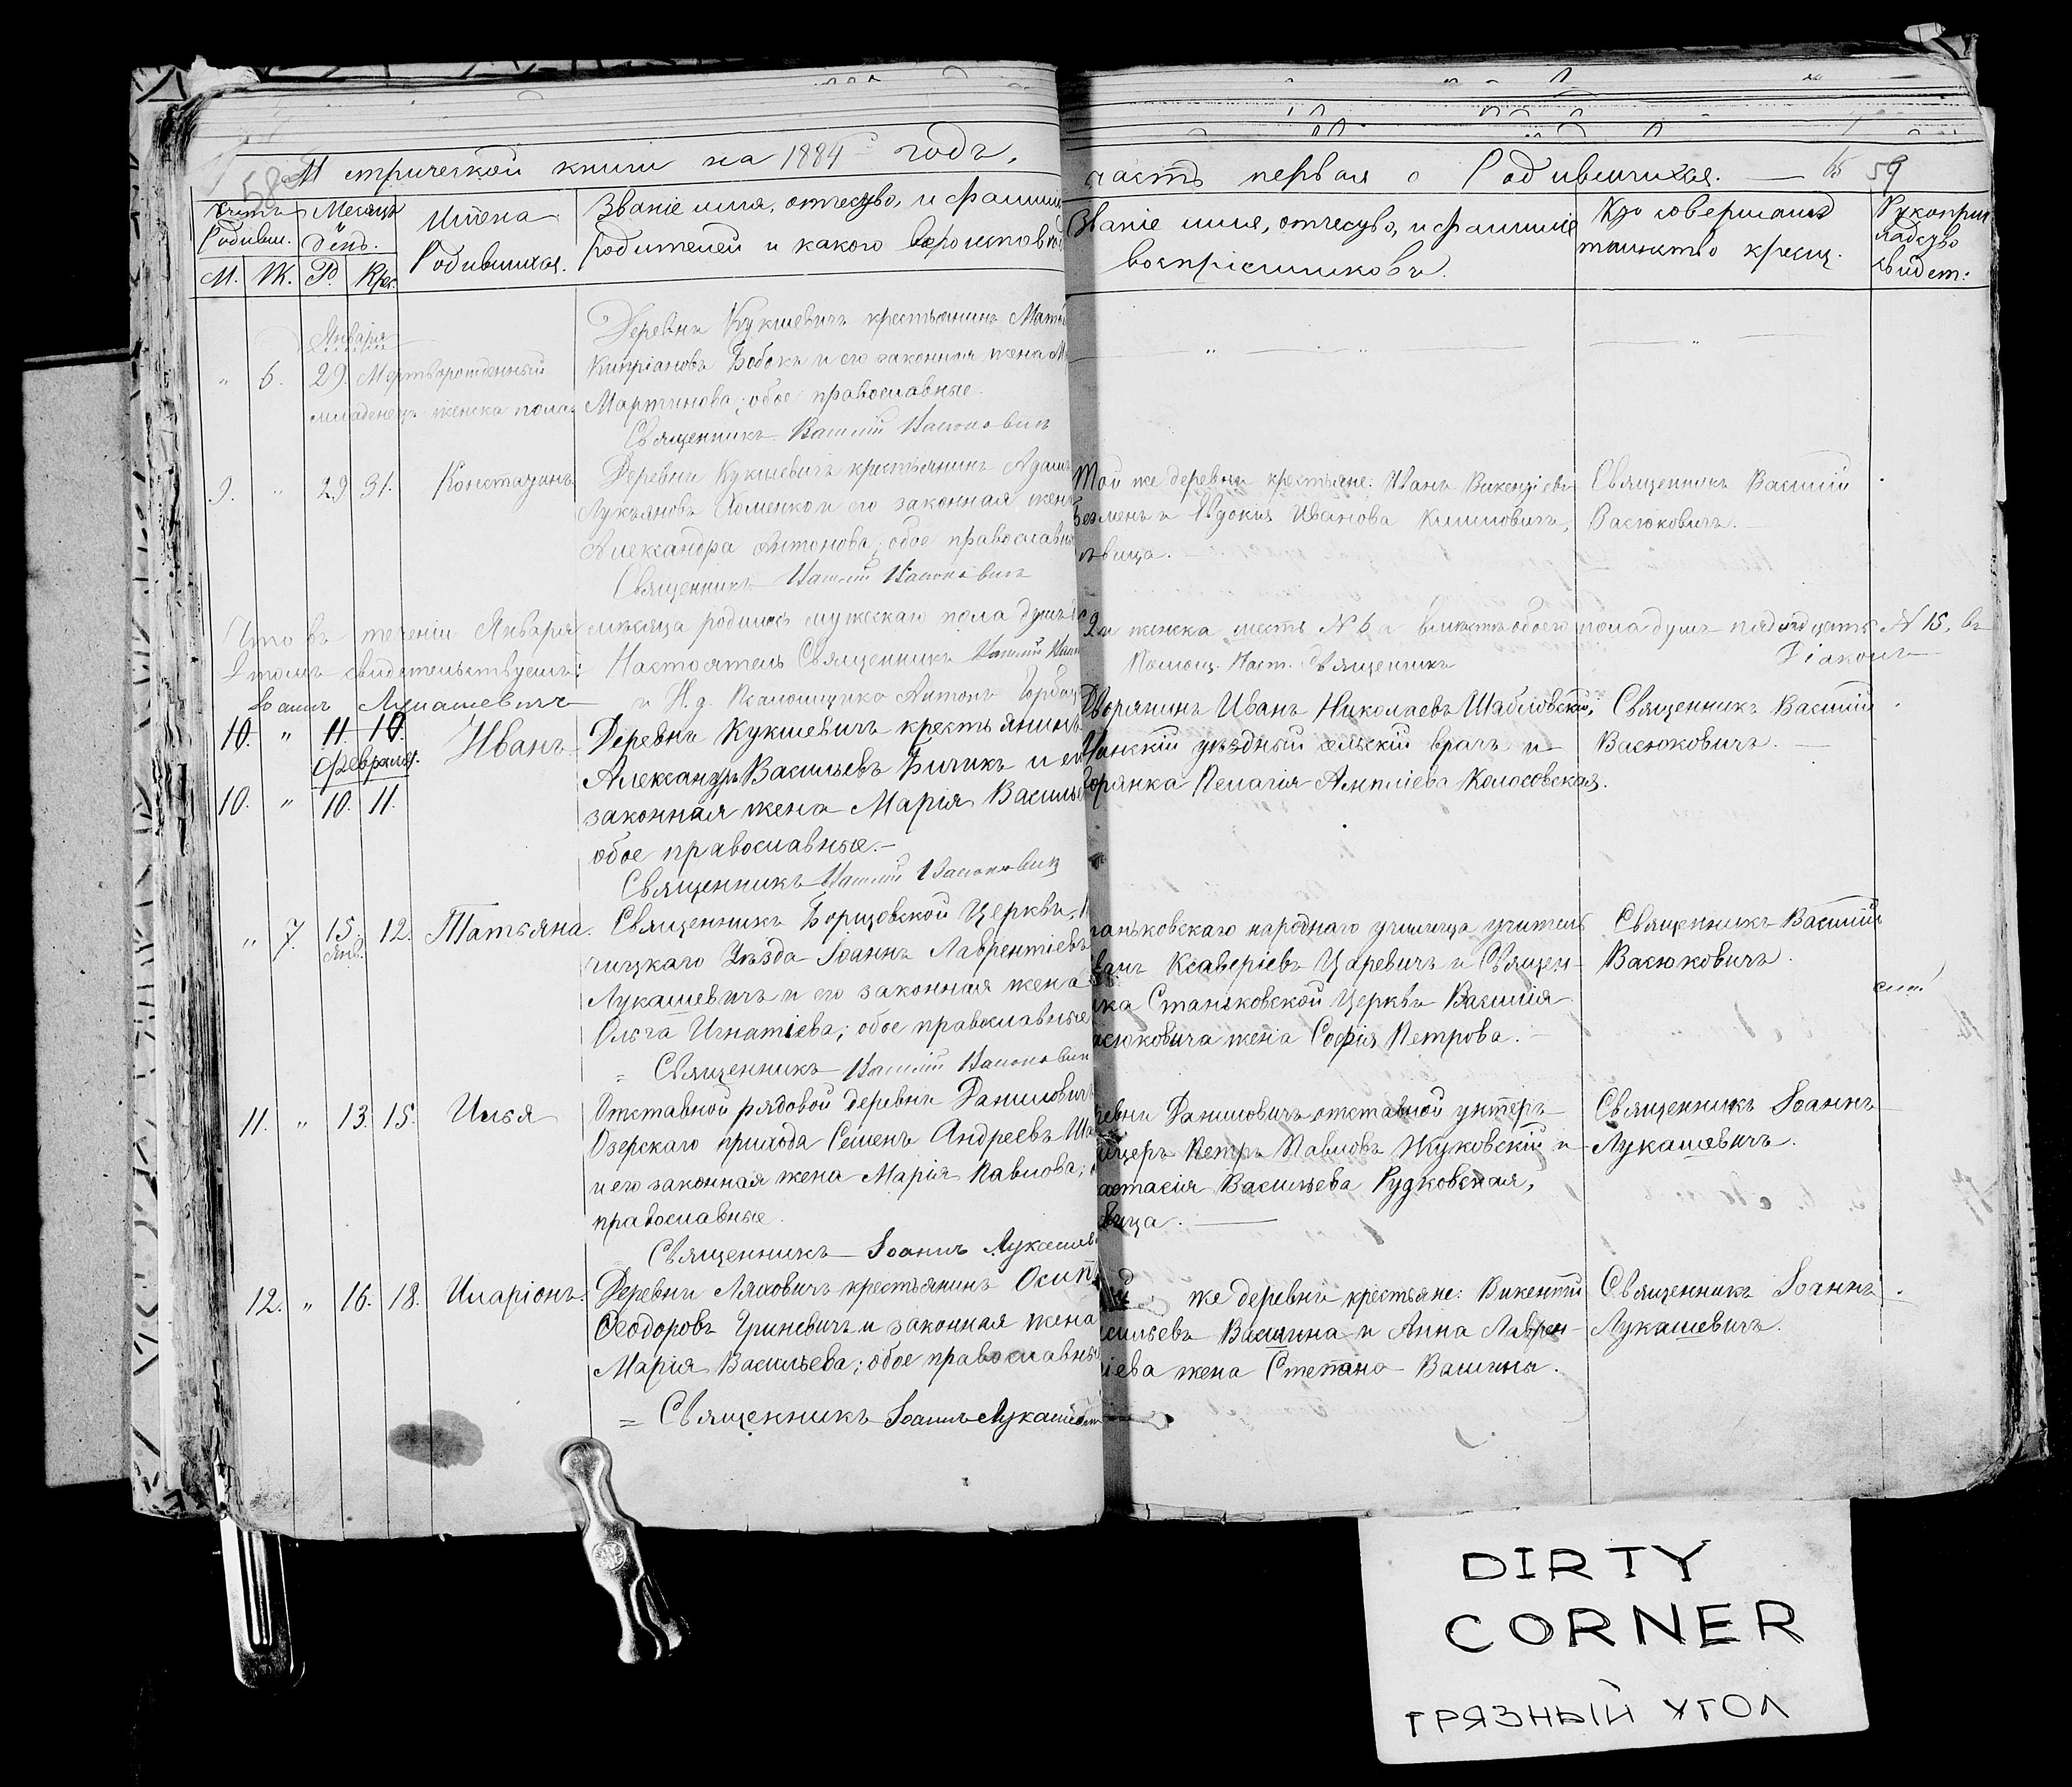 Метрической книги на 1884 годъ,
часть первая о Родившихся. 59
58
Счетъ Родивш.
Месяцъ и день.
Имена Родившихся.
Званіе имя, отчество, и фамилія
родителей и какого вероисповед
Званіе имя, отчество, и фамилія
воспріемниковъ.
Кто совершалъ
таинство крещ.
Рукоприкладство
свидет:
М. Ж. Р. Крес.
Января
" 6. 29. Мертворожденный
младенецъ женска пола.
Деревни Кукшевичъ крестьянинъ
Кипріановъ Бобокъ и его законная жена
Мартинова; обое православные.
Священникъ Василій Васюковичъ
9. " 29 31. Констатинъ
Деревни Кукшевичъ крестьянинъ Адамъ
Лукьяновъ Хоменко и его законная жена
Александра Антонова; обое православн
Священникъ Василій Васюковичъ
Той же деревни крестьяне: Иванъ Викентіевъ
и Евдокия Иванова Климовичъ,
девица.
Священникъ Василій
Васюковичъ.
Что въ теченіи Января месяца родилось мужескаго пола душъ
9 и женска шесть №6, а вместе обоего пола душъ пядндцять №15, въ
томъ свидетельствуемъ: Настоятель Священникъ Василій
Помощ. Наст. Священникъ
Діаконъ
Іоаннъ Лукашевичъ
и И. д. Псаломщика Антонъ
10. " 11. 10.
Февраля.
10. " 10. 11.
Иванъ
Деревни Кукшевичъ крестьянинъ
Александръ Васильевъ Бичикъ и его
законная жена Марія Василье
обое православные.—
Священникъ Василій Васюковичъ
Дворянинъ Иванъ Николаевъ Шабловскій,
Минскій уездный сельскій врачъ и
дворянка Пелагія Колосовская.
Священникъ Василій
Васюковичъ.—
" 7. 15. Янв. 12. Татьяна.
Священникъ Борщовской Церкви,
чицкаго Уезда Іоаннъ Лаврентіевъ
Лукашевичъ и его законная жена
Ольга Игнатіева; обое православные
= Священникъ Василій Васюковичъ
таньковскаго народнаго училища учитель
ванъ Ксаверіевъ Царевичъ и Священ-
ика Станьковской Церкви Василія
асюковича жена Софія Петрова.—
Священникъ Василій
Васюковичъ.
11. " 13. 15. Илья
Отставной рядовой деревни Даниловичъ
Озерскаго прихода Семенъ Андреевъ
и его законная жена Марія Павлова;
православные.
Священникъ Іоаннъ Лукашев
ревни Даниловичъ отставной унтеръ-
ицеръ Петръ Павловъ Жуковскій и
астасія Васильева Рудковская,
вица.—
Священникъ Іоаннъ
Лукашевичъ.
12. " 16. 18. Иларіонъ.
Деревни Ляховичъ крестьянинъ Осипъ
Феодоровъ Гриневичъ и законная жена
Марія Васильева; обое православны
= Священникъ Іоаннъ Лукашев
же деревни крестьяне: Викентій
сильевъ Вашина и Анна Лаврен-
тіева жена Степана Вашины.
Священникъ Іоаннъ
Лукашевичъ.
DIRTY
CORNER
ГРЯЗНЫЙ УГОЛ